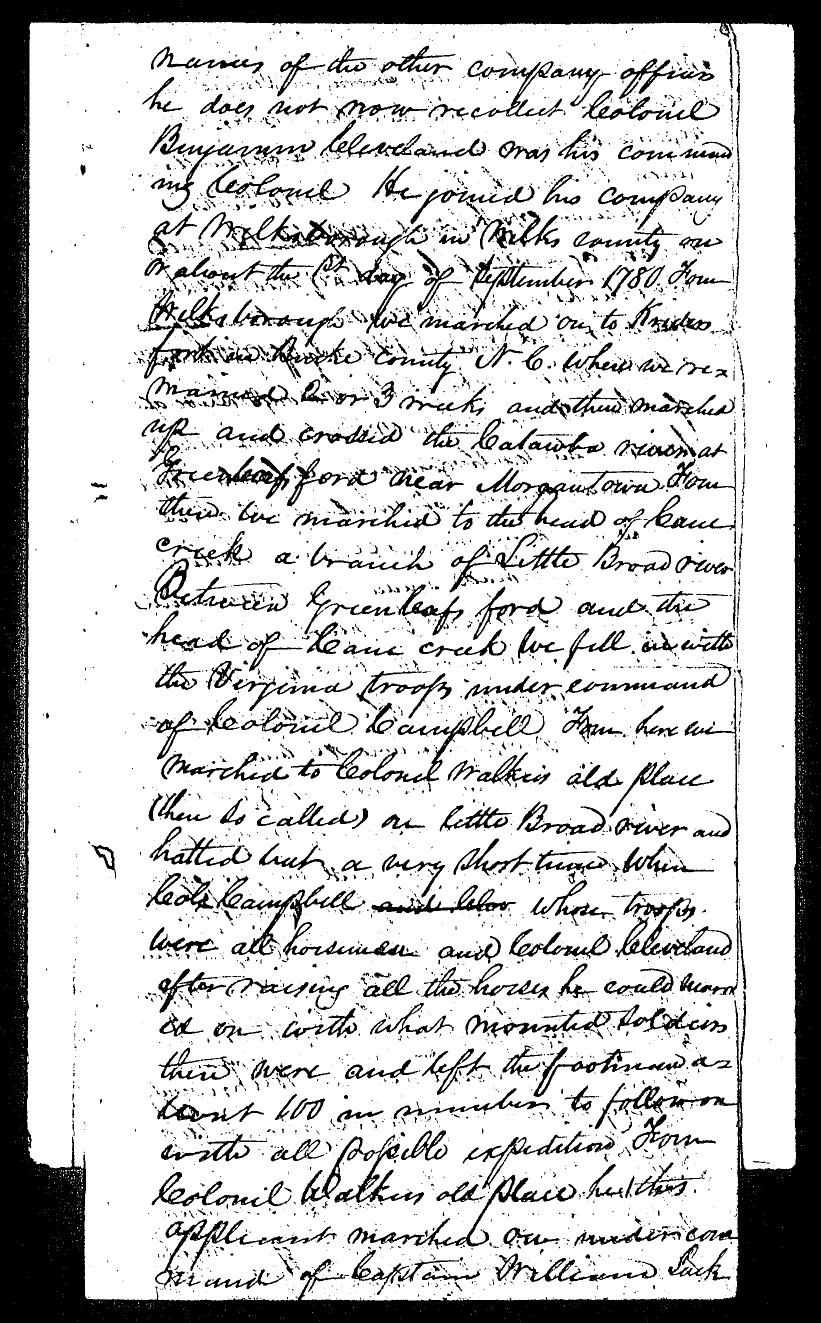 names of the other company officers
he does not now recollect Colonel
Benjamin Cleveland was his command
ing Colonel He joined his company
at Wilksborough in Wilks county on
or about the 1st day of September 1780 From
Wilksborough we marched on to Kriders
fort in Burke county N. C. where we re=
mained 2 or 3 weeks and then marched
up and crossed the Catawba river at
Greenleafs ford near Morgantown From
then we marched to the head of Cane
creek a branch of Little Broad river
Between Greenleafs ford and the
head of Cane creek we fell in with
the Virginia troops under command
of Colonel Campbell From here we
marched to Colonel Walkers old place
(then so called) on little Broad river and
halted but a very short time When
Colo Campbell and Clev whose troops
were all horsemen and Colonel Cleveland
after raising all the horses he could march
ed on with what mounted soldiers
there were and left the footmen a=
bout 400 in number to follow on
with all possible expedition From
Colonel Walkers old place he this
applicant marched on under com
mand of Captain William Jack